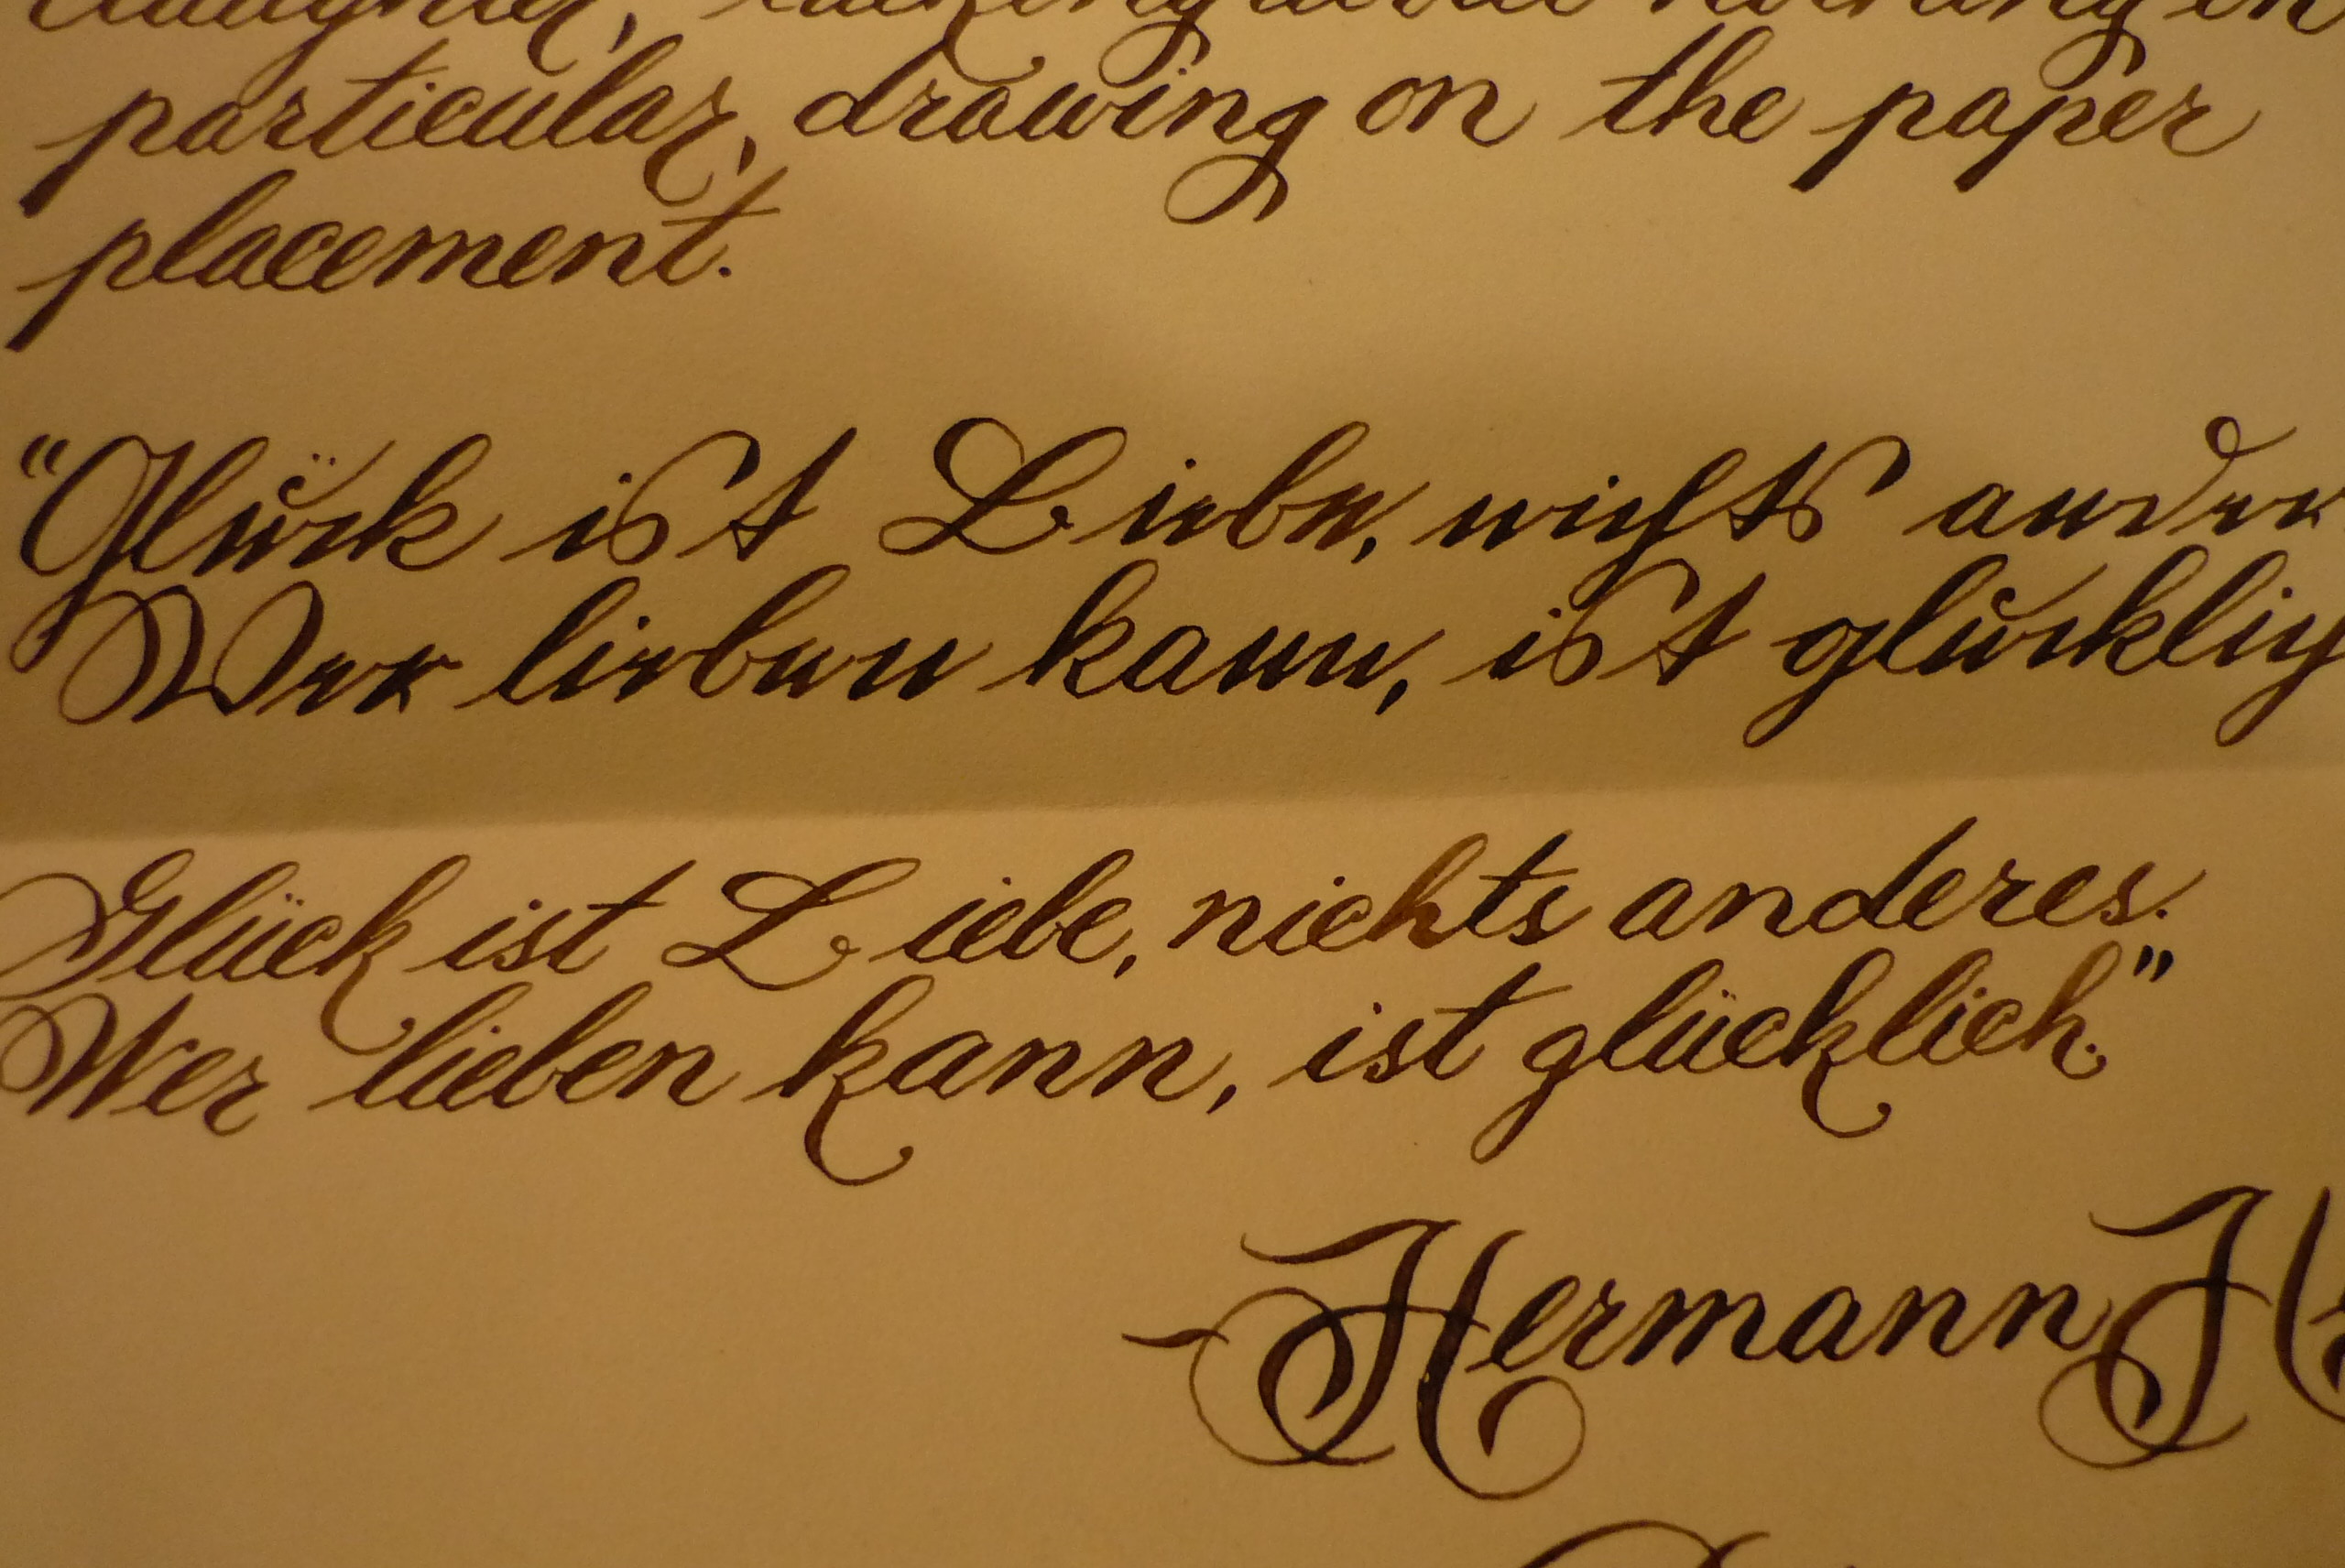 particular, drawing on the paper
placement.
“Glück ist Liebe, nichts andere
Wer lieben kann, ist glücklich
Glück ist Liebe, nichts anderes.
Wer lieben kann, ist glücklich.”
Hermann H